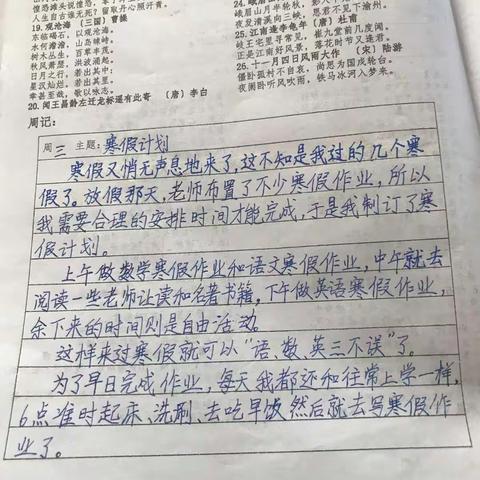 人生自古谁无死？留取丹心照汗青。
19.观沧海 （三国）曹操
东临碣石，以观沧海。
水何澹澹，山岛竦峙。
树木丛生，百草丰茂。
秋风萧瑟，洪波涌起。
日月之行，若出其中；
星汉灿烂，若出其里。
幸甚至哉，歌以咏志。
20.闻王昌龄左迁龙标遥有此寄 （唐）李白
峨眉山月半轮秋，
夜发清溪向三峡，
思君不见下渝州。
25.江南逢李龟年 （唐）杜甫
岐王宅里寻常见，
崔九堂前几度闻。
正是江南好风景，
落花时节又逢君。
26.十一月四日风雨大作 （宋）陆游
僵卧孤村不自哀，
尚思为国戍轮台。
夜阑卧听风吹雨，
铁马冰河入梦来。
周记：
周三 主题：寒假计划
寒假又悄无声息地来了，这不知是我过的几个寒
假了。放假那天，老师布置了不少寒假作业，所以
我需要合理的安排时间才能完成，于是我制订了寒
假计划。
上午做数学寒假作业和语文寒假作业，中午就去
阅读一些老师让读和名著书籍，下午做英语寒假作业，
余下来的时间则是自由活动。
这样来过寒假就可以“语、数、英三不误”了。
为了早日完成作业，每天我都还和往常上学一样，
6点准时起床、洗刷、去吃早饭，然后就去写寒假作
业了。